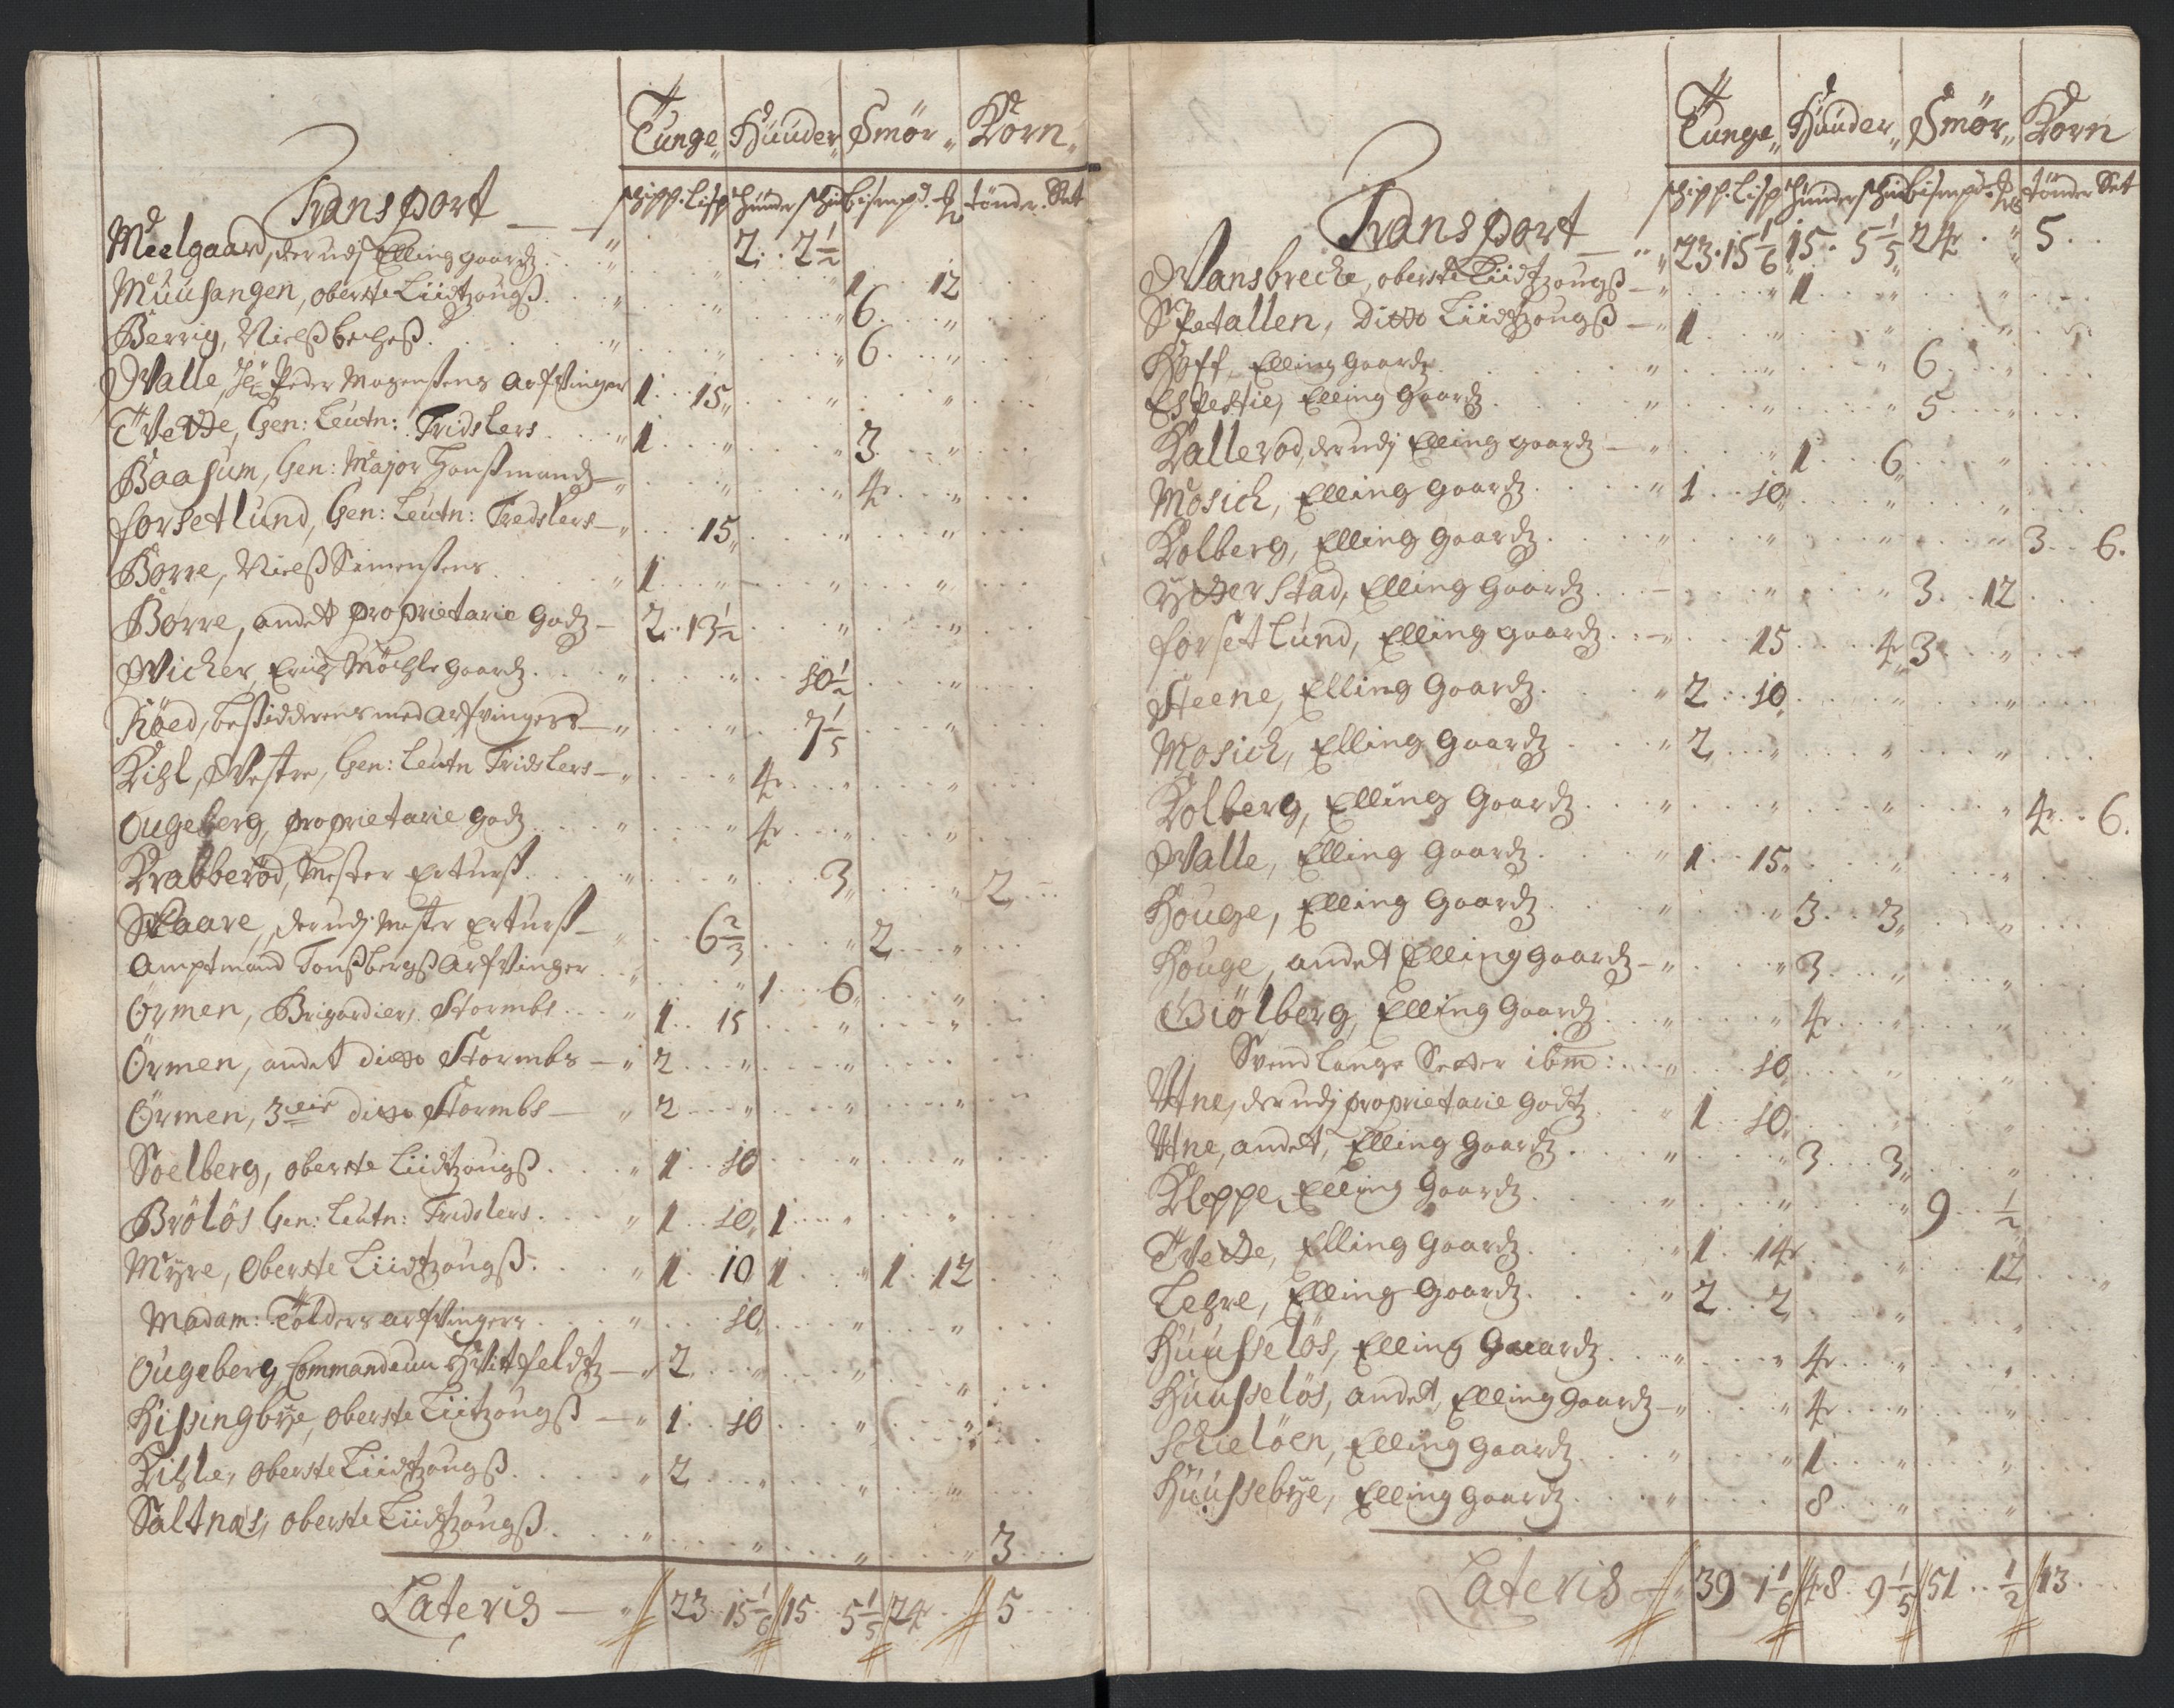 Tunge Huuder Smör Korn
Transport schipp. Lisp Huuder schin bismpd. tönder Set
Meelgaard, der udj Elling gaardz 2 2 1/2
Muusangen, oberste Liidtzougß 1 12
Berrig, Nielß bechß 6
Walle, Hr Peder Mogensens Arfvinger 6
1 15
Tvede, Gen: Leutn: Tridslers 1 3
Baasum, Gen: Major Haußmandz 4
Forsetlund, Gen: Leutn: Tredslers 15
Borre, Nielß Simensens 1
Borre, andet proprietarie Godz 2 13 1/2
Wicher, Erich Möchle gaardz 10 1/2
Röed, besidderens med Arfvingers 7 1/5
Kihl, Vestre, Gen: Leutn Tridslers 4
Ougeberg, proprietarie godz 4
Krabberöd, Mester Erturß 3 2
Skaare, der udj Mester Erturß 6 2/3 2
Amptmand Tonßbergß Arfvinger 1 6
Örmen, Brigardiers Stormbs 1 15
Örmen, andet ditto Stormbs 2
Örmen, 3die ditto Stormbs 2
Soelberg, oberste Liidtzougß 1 10
Brölös Gen: Leutn: Tridslers 1 10 1
Myre, Oberste Liidtzougß 1 10 1 1 12
Madam: Tolders arfvingers 10
Ougeberg, Commandeur Hvitfeldtz 2
Hissingbye, oberste Liitzougß 1 10
Kihle, oberste Liidtzougß 2
Saltnæs, oberste Liidtzougß 3
Lateris 23 15 1/6 15 5 1/5 24 5
Tunge Huuder Smör Korn
schipp. Lisp Huuder schin bismpd. tönder Set
Transport 23 15 1/6 15 5 1/5 24 5
Wansbreche, oberste Liidtzougß 1
Spetallen, Ditto Liidtzougß 1
Hoff, Elling Gaardz 6
Eskestie, Elling Gaardz 5
Kalleröd, der udj Elling gaardz 1 6
Mosich, Elling Gaardz 1 10
Kolberg, Elling Gaardz 3 6
Ytterstad, Elling Gaardz 3 12
Forsetlund, Elling gaardz 15 4 3
Steene, Elling Gaardz 2 10
Mosich, Elling Gaardz 2
Kolberg, Elling Gaardz 4 6
Walle, Elling Gaardz 1 15
Houge, Elling Gaardz 3 3
Houge, andet Elling gaardz 3
Giölberg, Elling Gaardz 4
Svend Lange Setter ibm: 10
Utne, der udj proprietarie Godtz 1 10
Utne, andet, Elling Gaardz 3 3
Kloppe, Elling Gaardz 9 1/2
Tvede, Elling Gaardz 1 14 12
Lehre, Elling Gaardz 2 2
Huusselös, Elling Gaardz 4
Huusselös, andet, Elling Gaardz 4
Schielöen, Elling Gaardz 1
Huussebye, Elling gaardz 8
Lateris 39 1 1/6 48 9 1/5 51 1/2 13